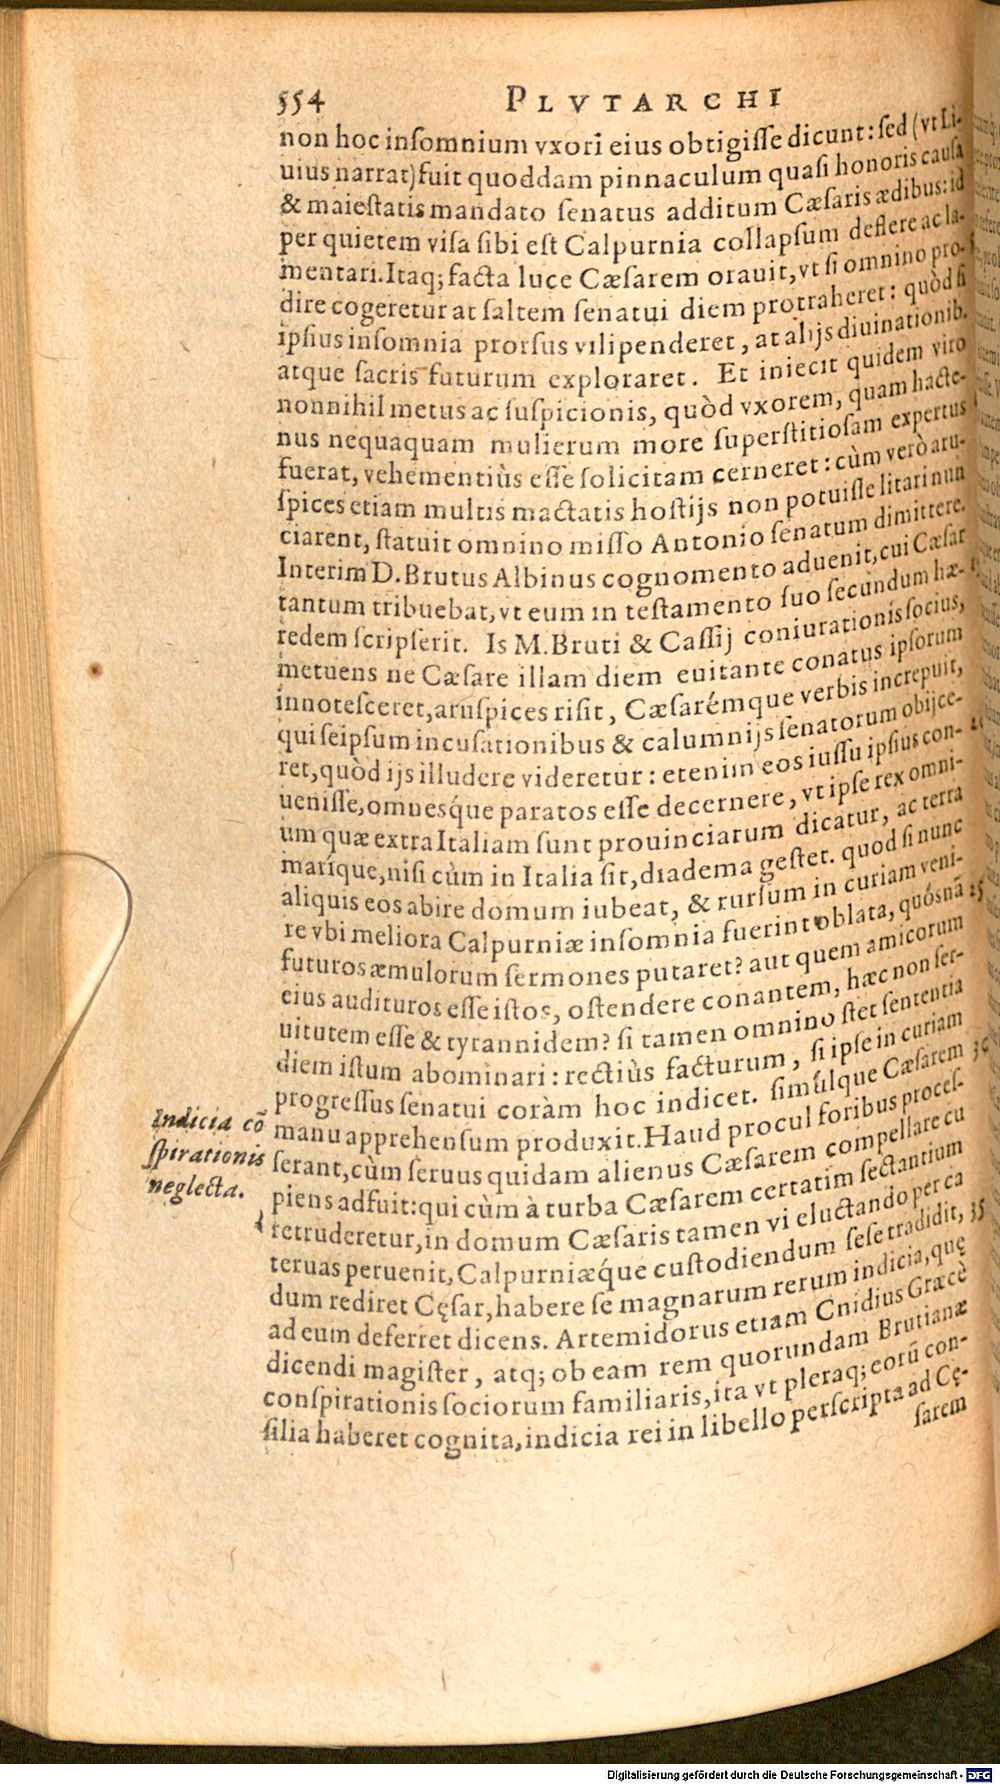 554 PLVTARCHI
non hoc inſomnium vxori eius obtigiſſe dicunt: ſed (vt Li-
uius narrat) fuit quoddam pinnaculum quaſi honoris cauſa
& maieſtatis mandato ſenatus additum Cæſaris ædibus: id
per quietem viſa ſibi eſt Calpurnia collapſum deflere ac la-
mentari. Itaq; facta luce Cæſarem orauit, vt ſi omnino pro-
dire cogeretur at ſaltem ſenatui diem protraheret: quòd ſi
ipſius inſomnia prorſus vilipenderet, at alijs diuinationib.
atque ſacris futurum exploraret. Et iniecit quidem viro
nonnihil metus ac ſuſpicionis, quòd vxorem, quam hacte-
nus nequaquam mulierum more ſuperſtitioſam expertus
fuerat, vehementiùs eſſe ſolicitam cerneret: cùm verò aru-
ſpices etiam multis mactatis hoſtijs non potuiſſe litari nun
ciarent, ſtatuit omnino miſſo Antonio ſenatum dimittere.
Interim D. Brutus Albinus cognomento aduenit, cui Cæſar
tantum tribuebat, vt eum in teſtamento ſuo ſecundum hæ-
redem ſcripſerit. Is M. Bruti & Caſſij coniurationis ſocius,
metuens ne Cæſare illam diem euitante conatus ipſorum
innoteſceret, aruſpices riſit, Cæſarémque verbis increpuit,
qui ſeipſum incuſationibus & calumnijs ſenatorum obijce-
ret, quòd ijs illudere videretur: etenim eos iuſſu ipſius con-
ueniſſe, omnesq́ue paratos eſſe decernere, vt ipſe rex omni-
um quæ extra Italiam ſunt prouinciarum dicatur, ac terra
maríque, niſi cùm in Italia ſit, diadema geſtet. quod ſi nunc
aliquis eos abire domum iubeat, & rurſum in curiam veni-
re vbi meliora Calpurniæ inſomnia fuerint oblata, quósnã 25
futuros æmulorum ſermones putaret? aut quem amicorum
eius audituros eſſe iſtos, oſtendere conantem, hæc non ſer-
uitutem eſſe & tyrannidem? ſi tamen omnino ſtet ſententia
diem iſtum abominari: rectiùs facturum, ſi ipſe in curiam
progreſſus ſenatui coràm hoc indicet. ſimúlque Cæſarem 30
manu apprehenſum produxit. Haud procul foribus proceſ-
ſerant, cùm ſeruus quidam alienus Cæſarem compellare cu
piens adfuit: qui cùm à turba Cæſarem certatim ſectantium
retruderetur, in domum Cæſaris tamen vi eluctando per ca
teruas peruenit, Calpurniæq́ue cuſtodiendum ſeſe tradidit, 35
dum rediret Cęſar, habere ſe magnarum rerum indicia, quę
ad eum deferret dicens. Artemidorus etiam Cnidius Græcè
dicendi magiſter, atq; ob eam rem quorundam Brutianæ
conſpirationis ſociorum familiaris, ita vt pleraq; eorũ con-
ſilia haberet cognita, indicia rei in libello perſcripta ad Cę-
ſarem
Indicia cõ
ſpirationis
neglecta.
Digitalisierung gefördert durch die Deutsche Forschungsgemeinschaft - DFG